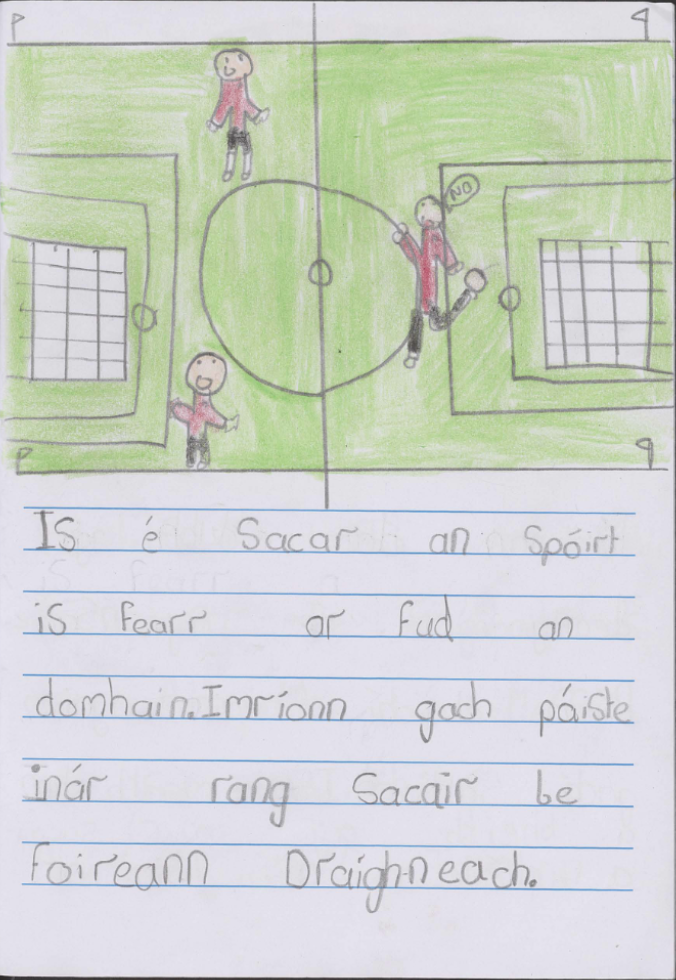 NO
Is é Sacar an Spóirt
is fearr ar fud an
domhain. Imríonn gach páiste
inár rang Sacair be
foireann Draighneach.